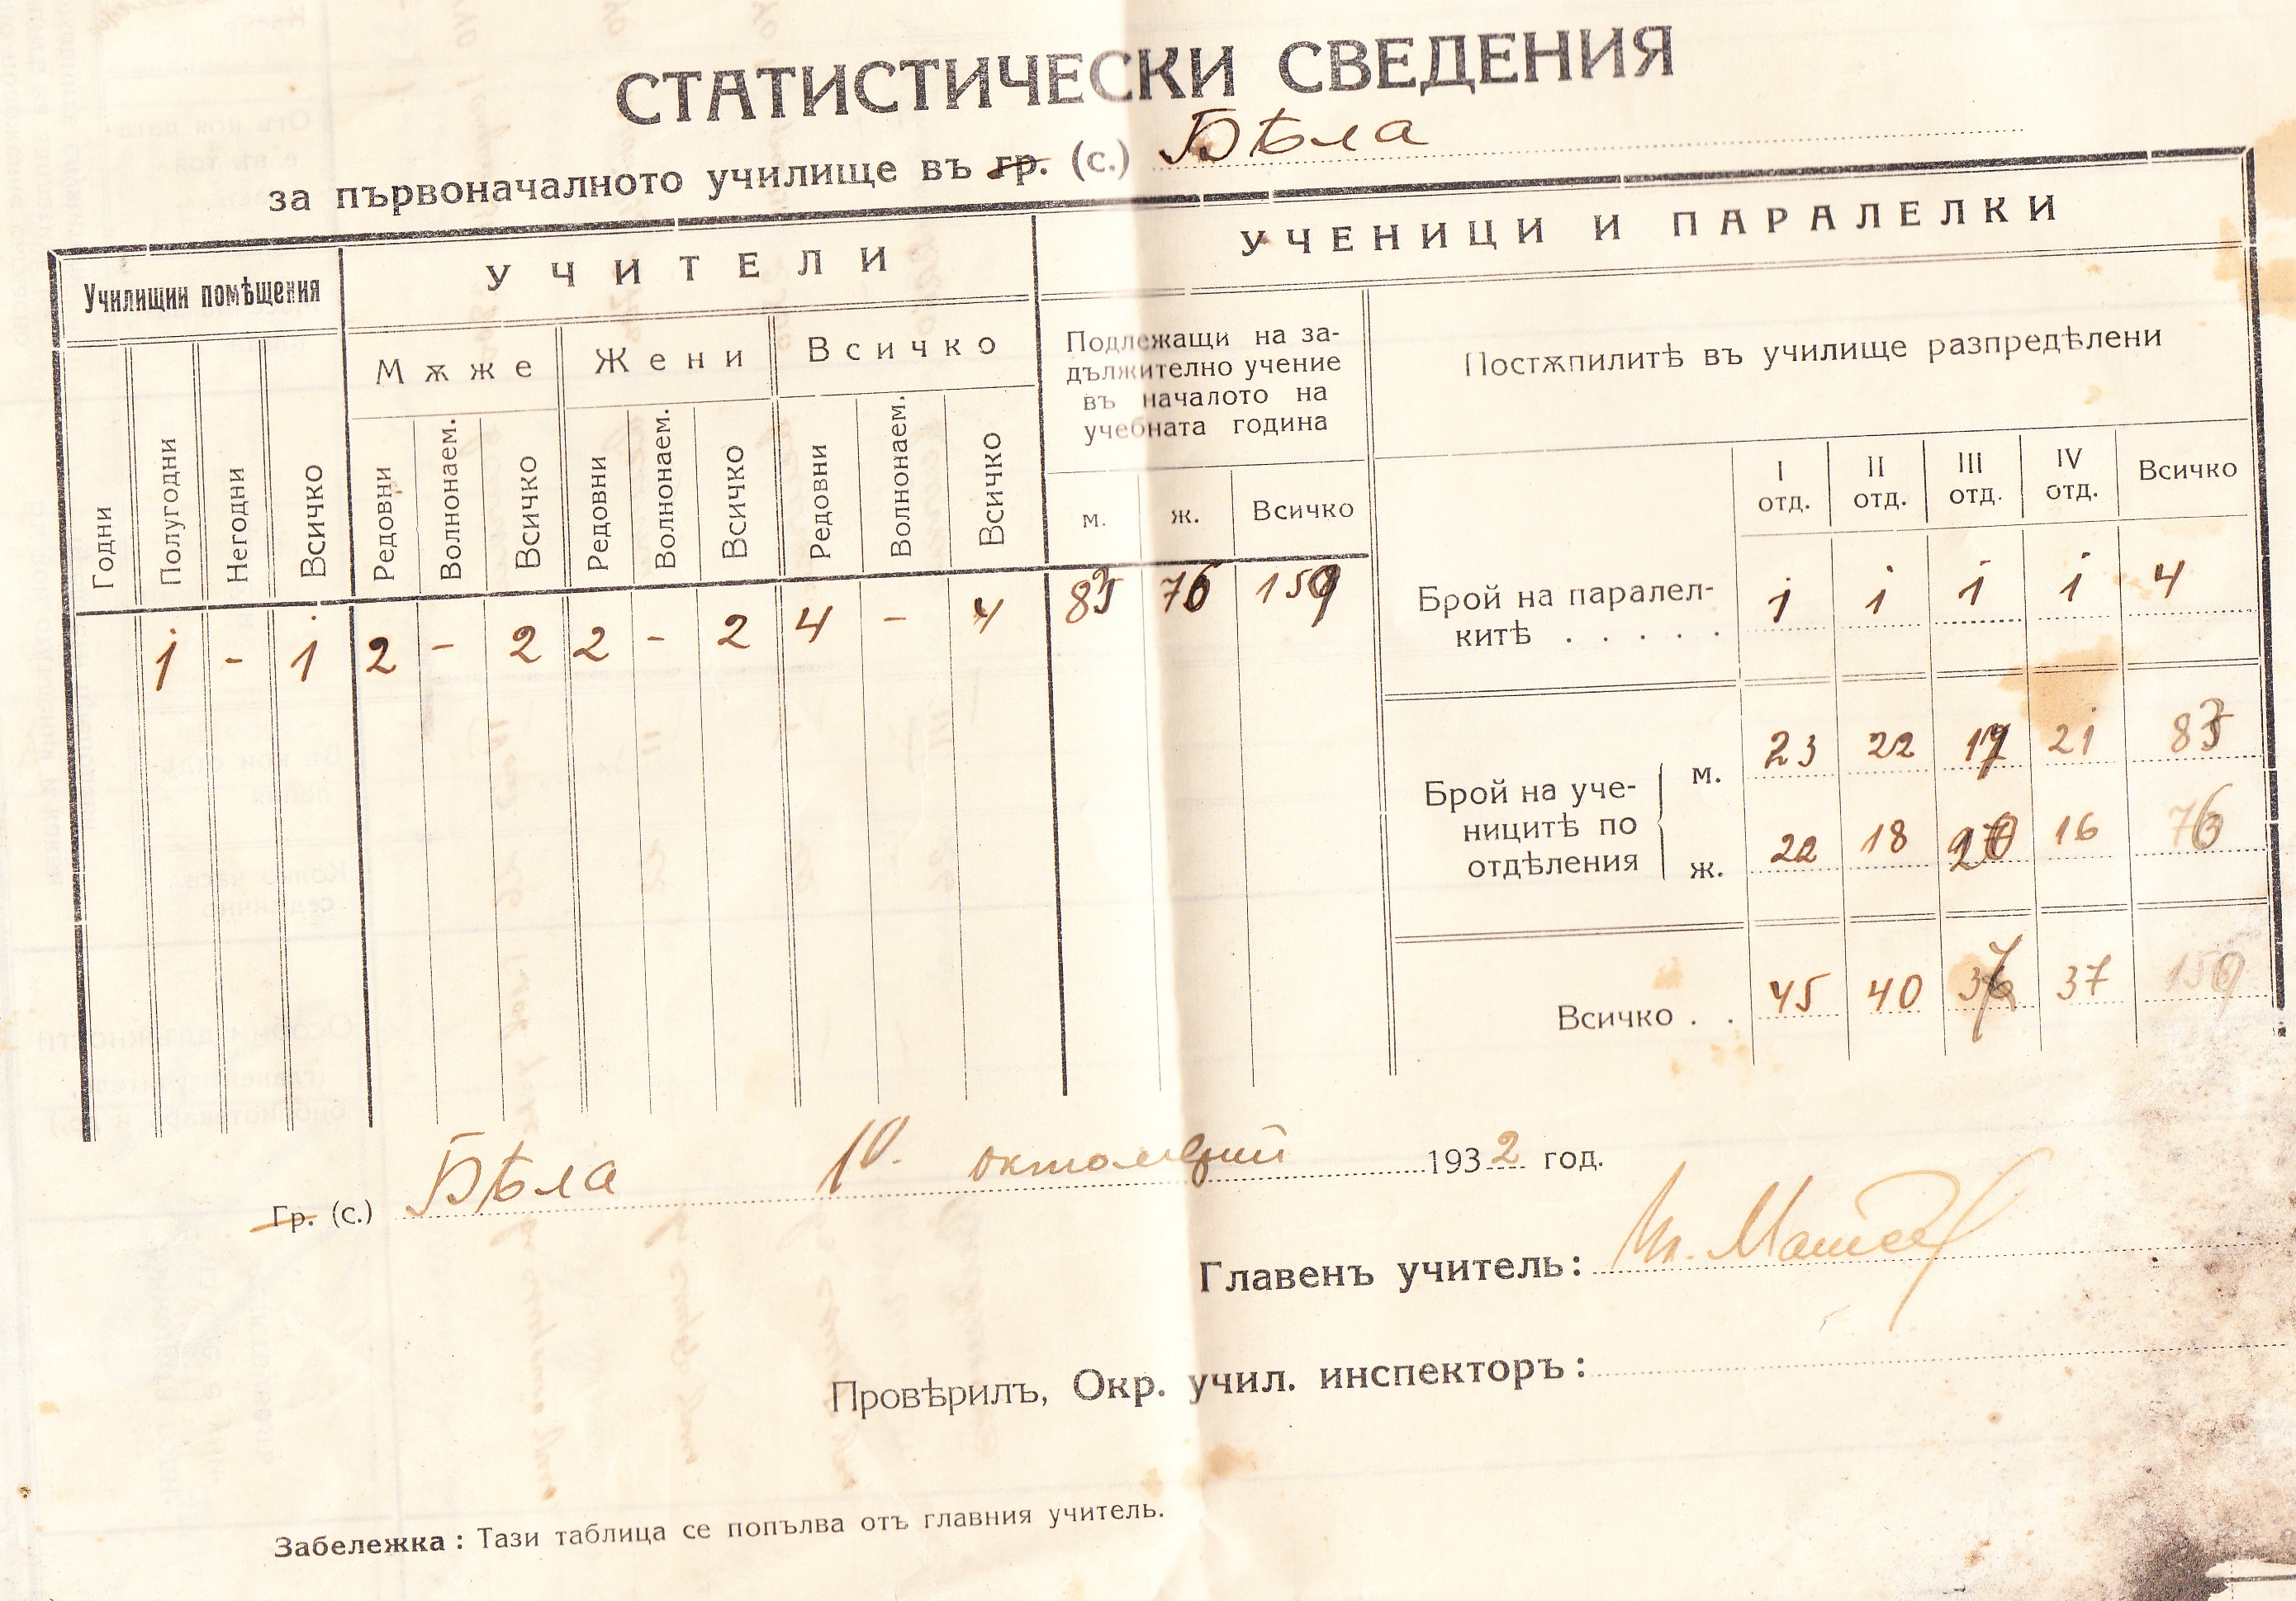 СТАТИСТИЧЕСКИ СВЕДЕНИЯ
за първоначалното училище въ гр. (с.) Бѣла
Училищни помѣщения
УЧИТЕЛИ
УЧЕНИЦИ И ПАРАЛЕЛКИ
Мѫже Жени Всичко
Подлежащи на за-
дължително учение
въ началото на
учебната година
Постѫпилитѣ въ училище разпредѣлени
Годни Полугодни Негодни Всичко Редовни Волнонаем. Всичко Редовни Волнонаем. Всичко Редовни Волнонаем. Всичко
м. ж. Всичко
I отд. II отд. III отд. IV отд. Всичко
1 - 1 2 - 2 2 - 2 4 - 4 83 76 159
Брой на паралел-
китѣ . . . . . 1 1 1 1 4
Брой на уче-
ницитѣ по
отдѣления
м. 23 22 17 21 83
ж. 22 18 20 16 76
Всичко . . 45 40 37 37 159
Гр. (с.) Бѣла 10. октомврий 1932 год.
Главенъ учитель:
Провѣрилъ, Окр. учил. инспекторъ:
Забележка: Тази таблица се попълва отъ главния учитель.